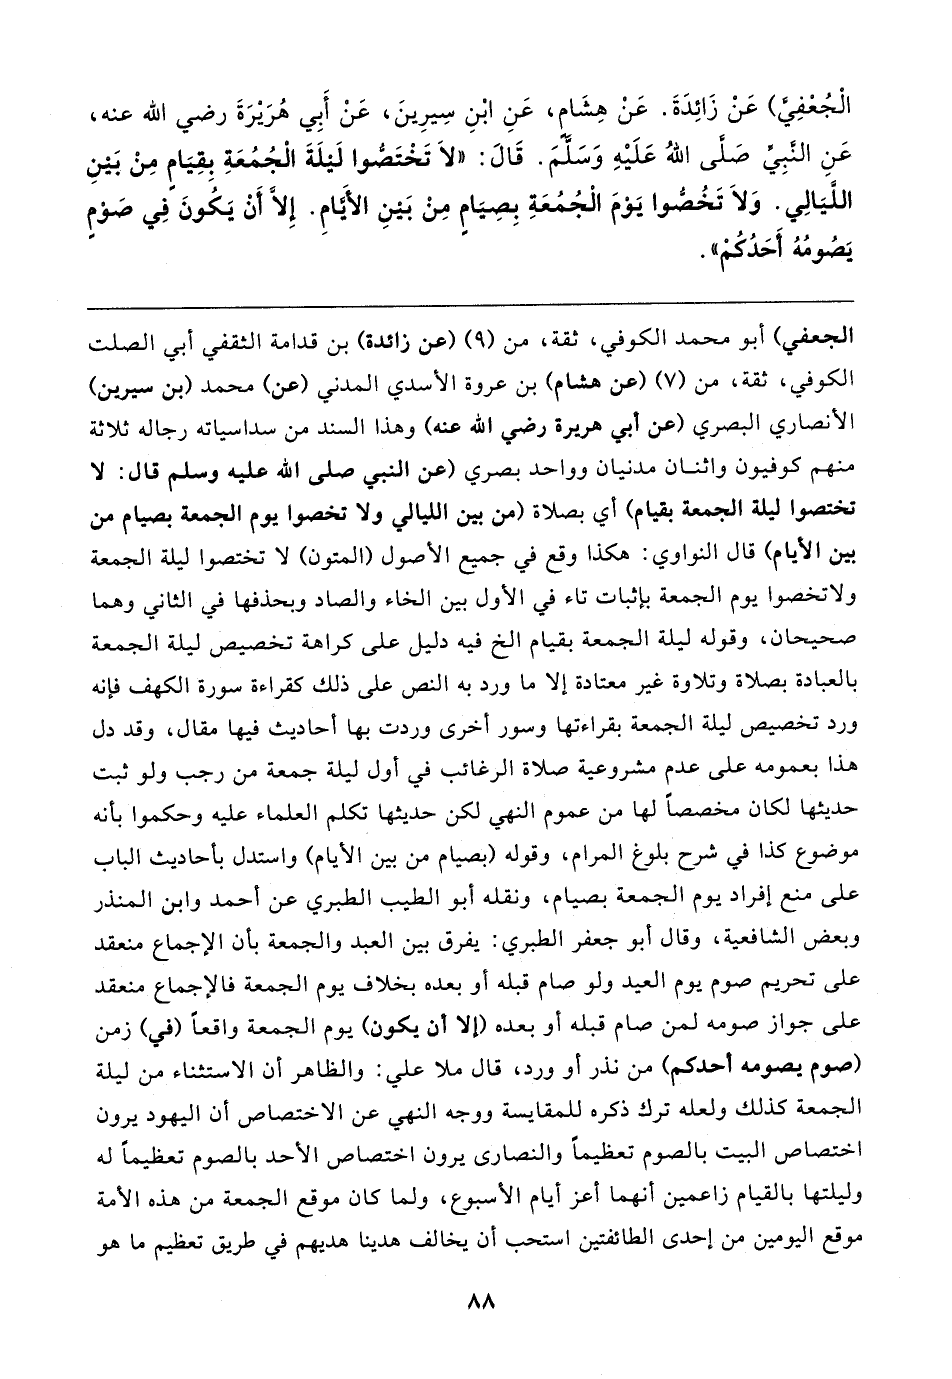 الْجُعْفِيَّ) عَنْ زَائِدَةَ. عَنْ هِشَامٍ، عَنِ ابْنِ سِيرِينَ، عَنْ أَبِي هُرَيْرَةَ رضي الله عنه،
عَنِ النَّبِيِّ صَلَّى اللهُ عَلَيْهِ وَسَلَّمَ. قَالَ: «لاَ تَخْتَصُّوا لَيْلَةَ الْجُمُعَةِ بِقِيَامٍ مِنْ بَيْنِ
اللَّيَالِي. وَلاَ تَخُصُّوا يَوْمَ الْجُمُعَةِ بِصِيَامٍ مِنْ بَيْنِ الأَيَّامِ. إِلاَّ أَنْ يَكُونَ فِي صَوْمٍ
يَصُومُهُ أَحَدُكُمْ».
الجعفي) أبو محمد الكوفي، ثقة، من (٩) (عن زائدة) بن قدامة الثقفي أبي الصلت
الكوفي، ثقة، من (٧) (عن هشام) بن عروة الأسدي المدني (عن) محمد (بن سيرين)
الأنصاري البصري (عن أبي هريرة رضي الله عنه) وهذا السند من سداسياته رجاله ثلاثة
منهم كوفيون واثنان مدنيان وواحد بصري (عن النبي صلى الله عليه وسلم قال: لا
تختصوا ليلة الجمعة بقيام) أي بصلاة (من بين الليالي ولا تخصوا يوم الجمعة بصيام من
بين الأيام) قال النواوي: هكذا وقع في جميع الأصول (المتون) لا تختصوا ليلة الجمعة
ولاتخصوا يوم الجمعة بإثبات تاء في الأول بين الخاء والصاد وبحذفها في الثاني وهما
صحيحان، وقوله ليلة الجمعة بقيام الخ فيه دليل على كراهة تخصيص ليلة الجمعة
بالعبادة بصلاة وتلاوة غير معتادة إلا ما ورد به النص على ذلك كقراءة سورة الكهف فإنه
ورد تخصيص ليلة الجمعة بقراءتها وسور أخرى وردت بها أحاديث فيها مقال، وقد دل
هذا بعمومه على عدم مشروعية صلاة الرغائب في أول ليلة جمعة من رجب ولو ثبت
حديثها لكان مخصصاً لها من عموم النهي لكن حديثها تكلم العلماء عليه وحكموا بأنه
موضوع كذا في شرح بلوغ المرام، وقوله (بصيام من بين الأيام) واستدل بأحاديث الباب
على منع إفراد يوم الجمعة بصيام، ونقله أبو الطيب الطبري عن أحمد وابن المنذر
وبعض الشافعية، وقال أبو جعفر الطبري: يفرق بين العيد والجمعة بأن الإجماع منعقد
على تحريم صوم يوم العيد ولو صام قبله أو بعده بخلاف يوم الجمعة فالإجماع منعقد
على جواز صومه لمن صام قبله أو بعده (إلا أن يكون) يوم الجمعة واقعاً (في) زمن
(صوم يصومه أحدكم) من نذر أو ورد، قال ملا علي: والظاهر أن الاستثناء من ليلة
الجمعة كذلك ولعله ترك ذكره للمقايسة ووجه النهي عن الاختصاص أن اليهود يرون
اختصاص البيت بالصوم تعظيماً والنصارى يرون اختصاص الأحد بالصوم تعظيماً له
وليلتها بالقيام زاعمين أنهما أعز أيام الأسبوع، ولما كان موقع الجمعة من هذه الأمة
موقع اليومين من إحدى الطائفتين استحب أن يخالف هدينا هديهم في طريق تعظيم ما هو
٨٨